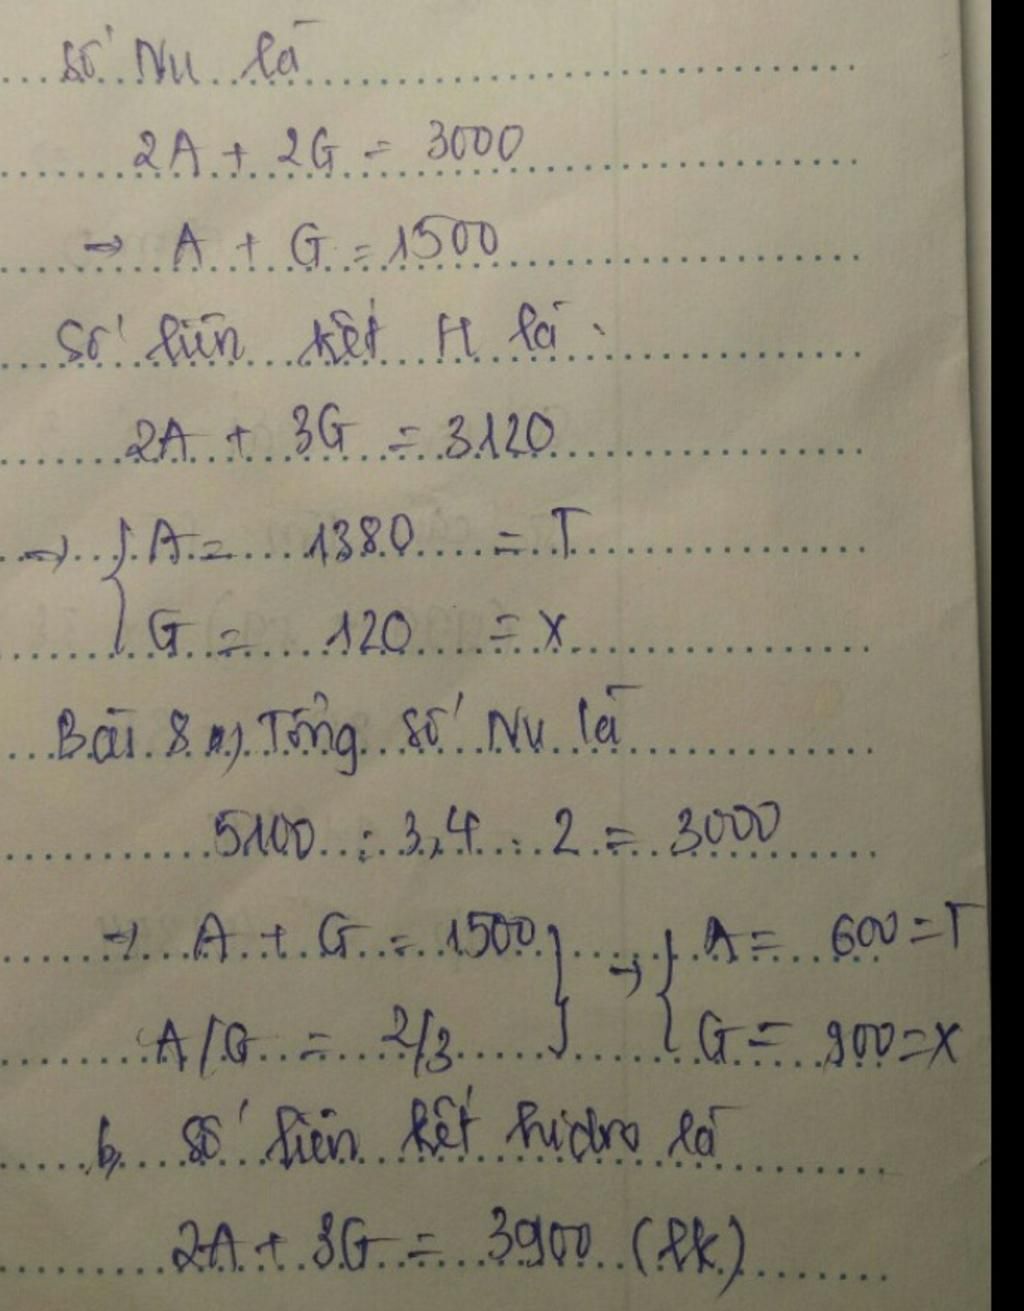 Số Nu là
2A + 2G = 3000
→ A + G = 1500
Số liên kết H là
2A + 3G = 3120
→ { A = 1380 = T
G = 120 = X
Bài 8 a, Tổng số Nu là
5100 : 3,4 . 2 = 3000
→ A + G = 1500 } → { A = 600 = T
A/G = 2/3 G = 900 = X
b, Số liên kết hidro là
2A + 3G = 3900 (lk)